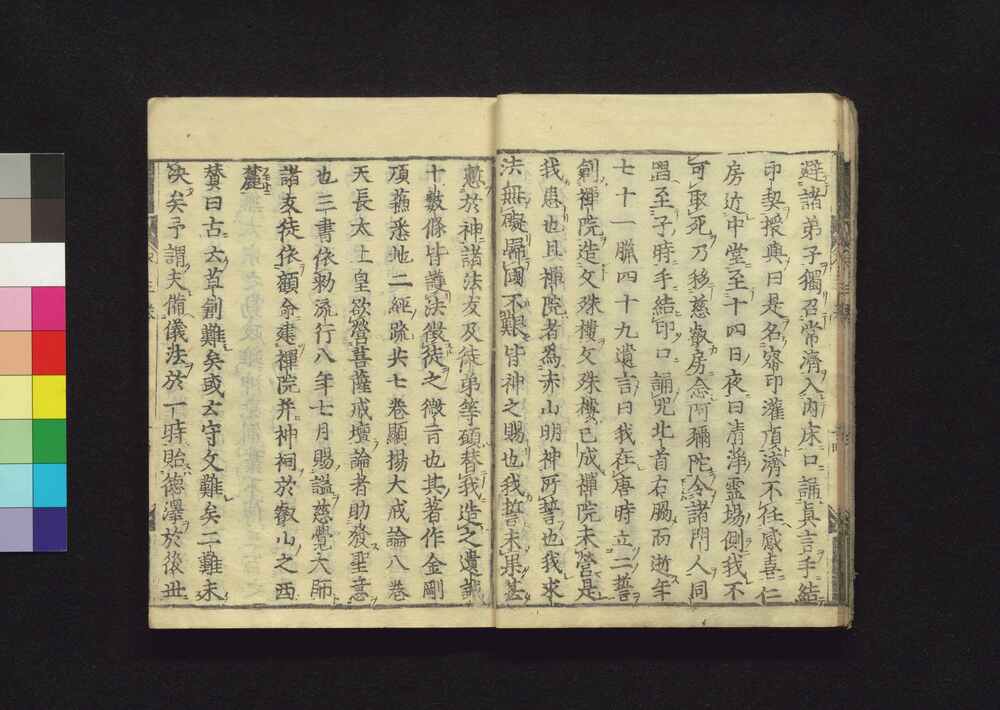 避諸弟子獨召常濟入內床口誦眞言手結
印契授與曰是名密印灌頂濟不任感喜仁
房近中堂至十四日夜曰淸淨靈場側我不
可取死乃移慈叡房念阿彌陀令諸門人同
唱至子時手結印口誦咒北首右脇而逝年
七十一臘四十九遺言曰我在唐時立二誓
創禪院造文殊樓文殊樓已成禪院未營是
我患也且禪院者爲赤山明神所誓也我求
法無礙歸國不艱皆神之賜也我誓未果甚
慙於神諸法友及徒弟等碩替我造之遺誡
十數條皆護法徵徒之微言也其著作金剛
頂蘇悉地二經疏共七卷顯揚大戒論八卷
天長太上皇欲營菩薩戒壇論者助發聖意
也三書依勅流行八年七月賜謚慈覺大師
諸友徒依顧命建禪院并神祠於叡山之西
麓
贊曰古云草創難矣或云守文難矣二難未
決矣予謂夫備儀法於一時貽德澤於後世